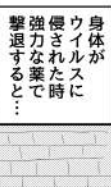 身体が
ウイルスに
侵された時
強力な薬で
撃退すると…